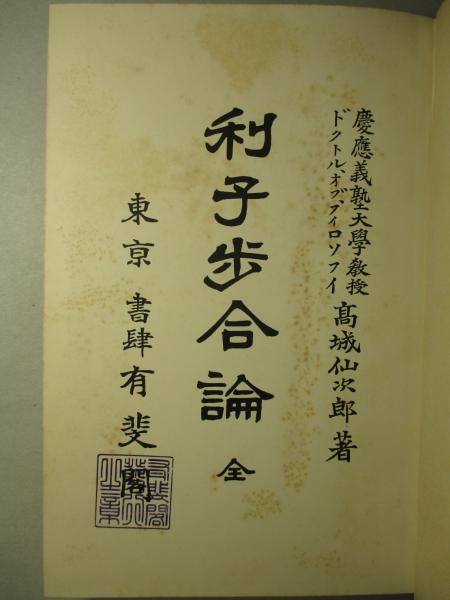 慶應義塾大學敎授
ドクトル、オブ、フィロソフイ
髙城仙次郎著
利子步合論 全
東京 書肆 有斐閣